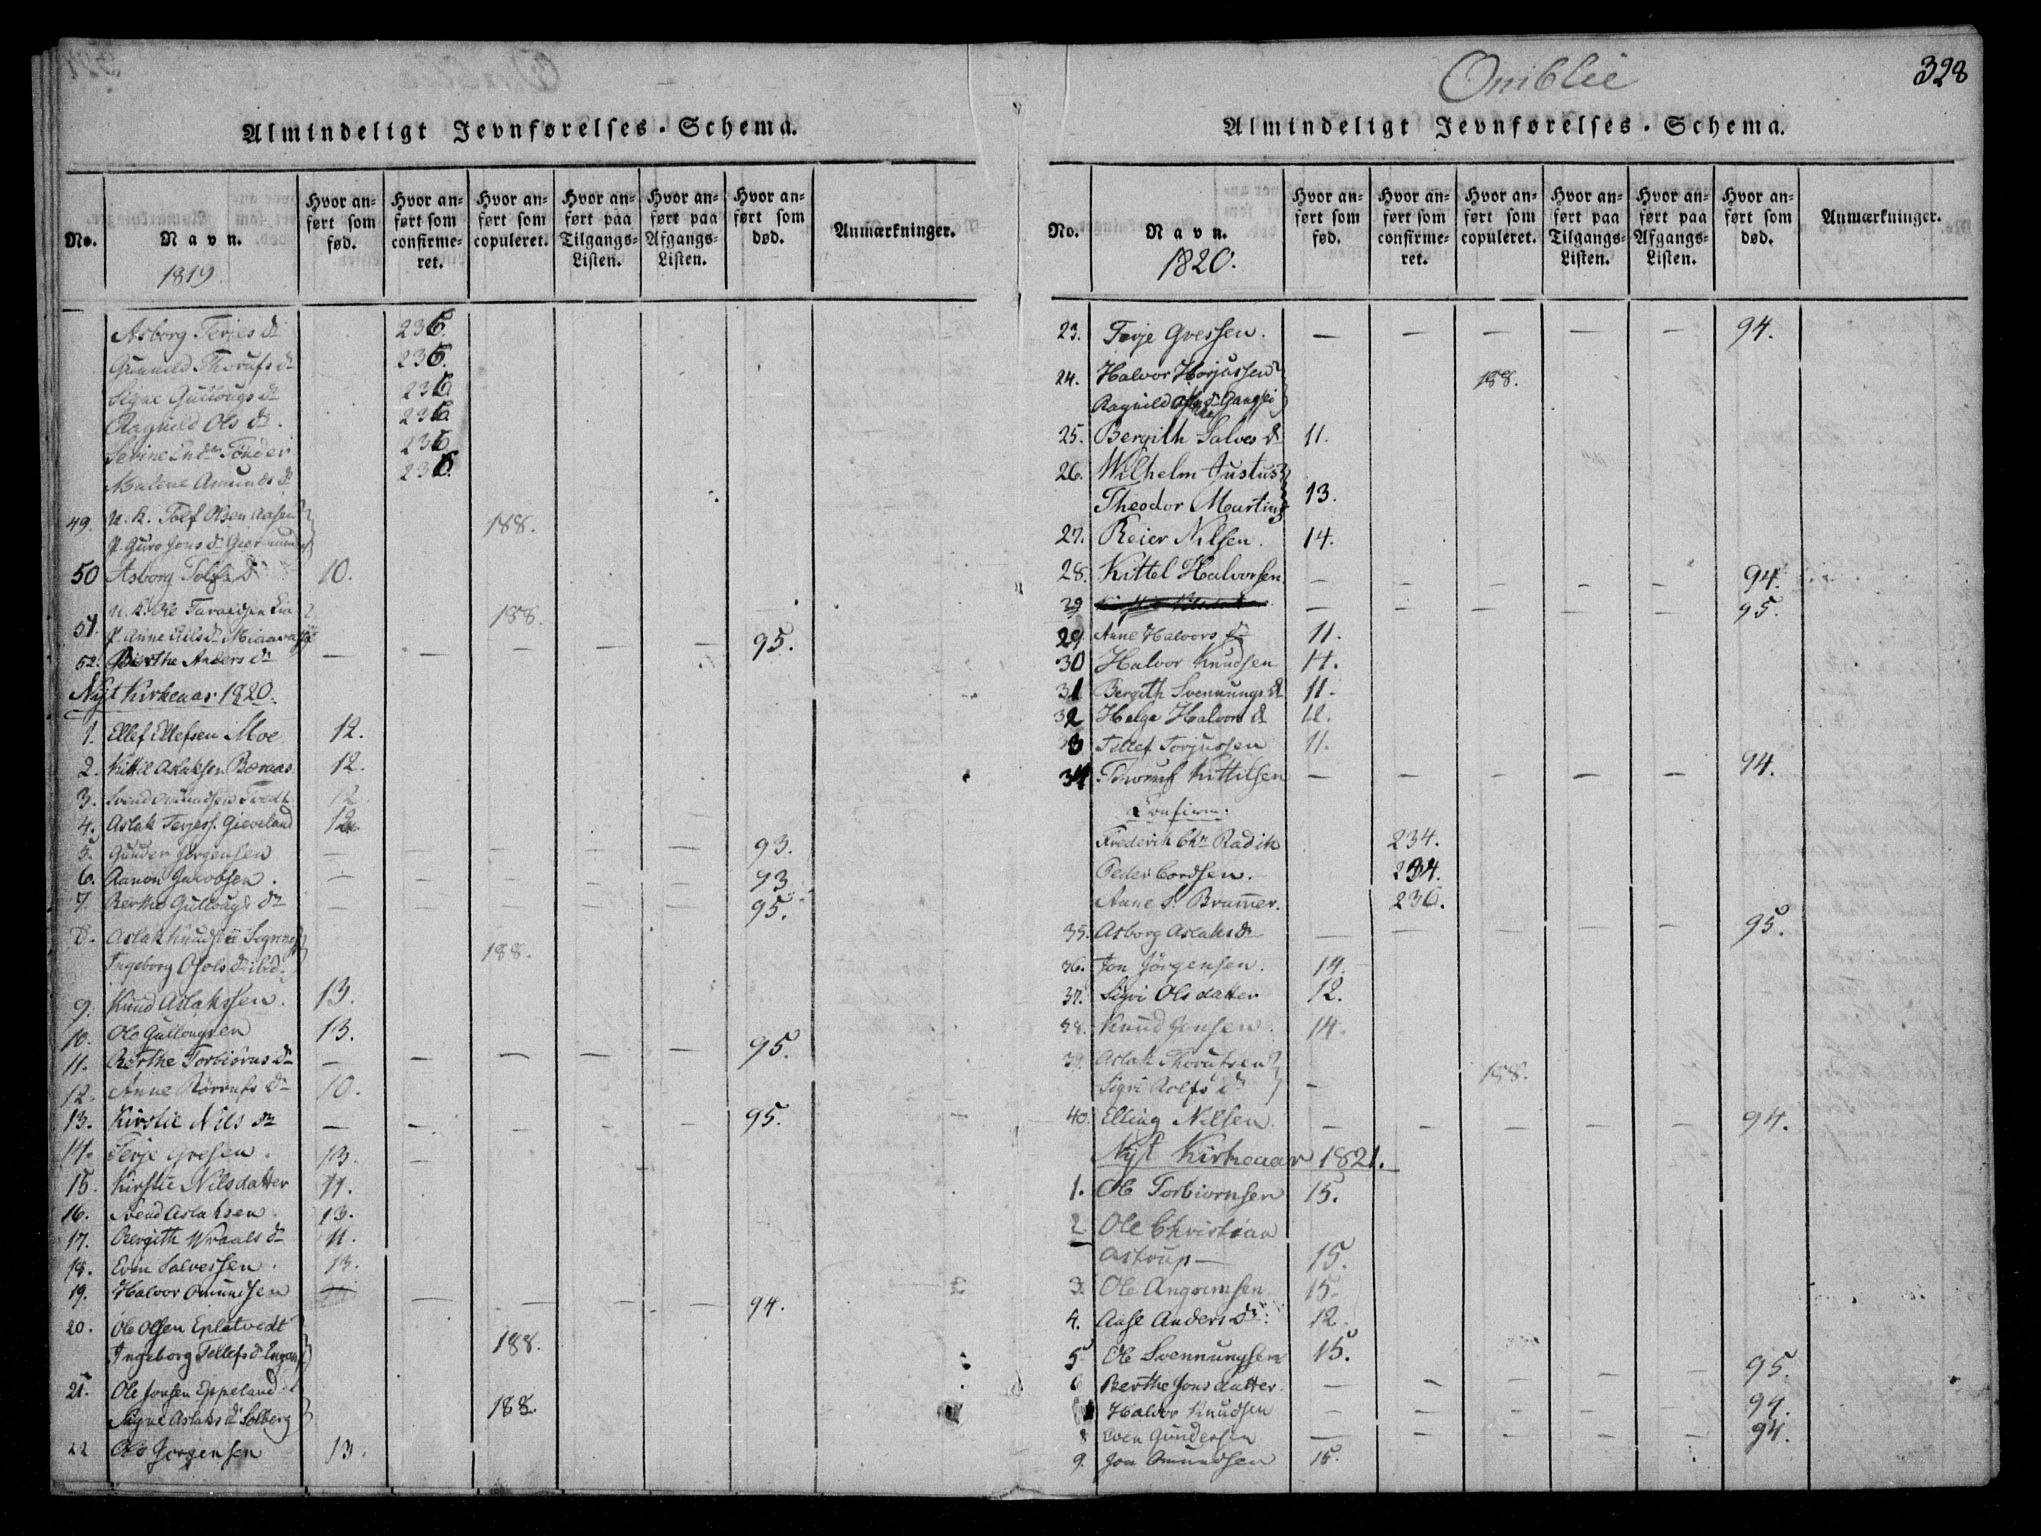 Almindeligt Jevnførelses-Schema.
No. Navn. Hvor anført som fød. Hvor anført som confirmeret. Hvor anført som copuleret. Hvor anført paa Tilgangs-Listen. Hvor anført paa Afgangs-Listen. Hvor anført som død. Anmærkninger.
1819.
Asborg Terjes dr 236.
Gunnild Thorufs dr 236.
Signe Gullougs dr 236
Ragnild Ols dr. 236
Serine Tønder 236
Malene Amunds dr 236.
49. U. K. Tolf Olsen Aasen
P. Guro Jons dr 188.
50 Asborg dr 10.
51. U. K. Ole Taraldsen
P. Anne Nils dr 188.
52. Birthe Anders dr — — — — — 95.
Nyt Kirkeaar 1820.
1. Ellef Ellefsen Moe 12.
2. Kittil Aslaksen Boraas 12.
3. Svend Omundsen Tvedt 12
4. Aslak Terjess. Gieveland 12.
5. Gunder Jørgensen — — — — — 93.
6. Aanon Jacobsen. — — — — — 93
7. Berthe Gullougs dr — — — — — 95.
8. Aslak Knudsen
Ingeborg Ols dr ibid. 188.
9. Knud Aslakssen. 13.
10. Ole Gullougsen 13.
11. Berthe Torbiørns dr — — — — — 95.
12. Anne dr 10.
13. Kirstie Nils dr — — — — — 95.
14. Terje Gresen. 13. —
15. Kirstie Nilsdatter 11.
16. Svend Aslaksen. 13.
17. Bergith Wraals dr 11.
18. Even Salvessen. 13.
19. Halvor Omundsen — — — — — 94.
20. Ole Olsen Epletvedt
Ingeborg Tellefs dr 188.
21. Ole Jonsen Eppeland
Signe Aslaks dr Solberg 188.
22 Ole Jørgensen 13.
Omblie
328
Almindeligt Jevnførelses-Schema.
No. Navn. Hvor anført som fød. Hvor anført som confirmeret. Hvor anført som copuleret. Hvor anført paa Tilgangs-Listen. Hvor anført paa Afgangs-Listen. Hvor anført som død. Anmærkninger.
1820.
23. Terje Gressen. — — — — — 94.
24. Halvor Horjussen
Ragnild dr 188.
25. Bergith Salves dr 11.
26. Wilhelm Justus
Theodor Martins 13.
27. Reier Nilsen. 14.
28. Kittel Halvorsen — — — — — 94.
29 — — — — — 95.
29. Anne Halvors dr 11.
30 Halvor Knudsen 14.
31 Bergith Svennungs dr 11.
32 Helge Halvors dr 12.
3 Tellef Torjussen 11.
34 Thorruf Kittilsen — — — — — 94.
Confirm:
Frederik Chr. Radik 234.
Peder Cordsen. 234.
Anne S. Brammer. 236.
35. Asborg Aslaks dr — — — — — 95.
36. Jon Jørgensen. 14.
37. Sigri Olsdatter 12.
38. Knud Jonsen. 14.
39. Aslak Thorufsen
Sigri Rolfs dr — 188.
40. Elling Nilsen. — — — — — 94.
Nyt Kirkeaar 1821.
1. Ole Torbiørnsen 15.
2 Ole Christian
Astrup — 15.
3. Ole Angrimsen 15.
4. Aase Anders dr. 12.
5 Ole Svennungsen 15.
6 Berthe Jonsdatter. — — — — — 95.
Halvor Knudsen — — — — — 94.
8 Even Gundersen — — — — — 94.
9. Jon Omundsen 15.